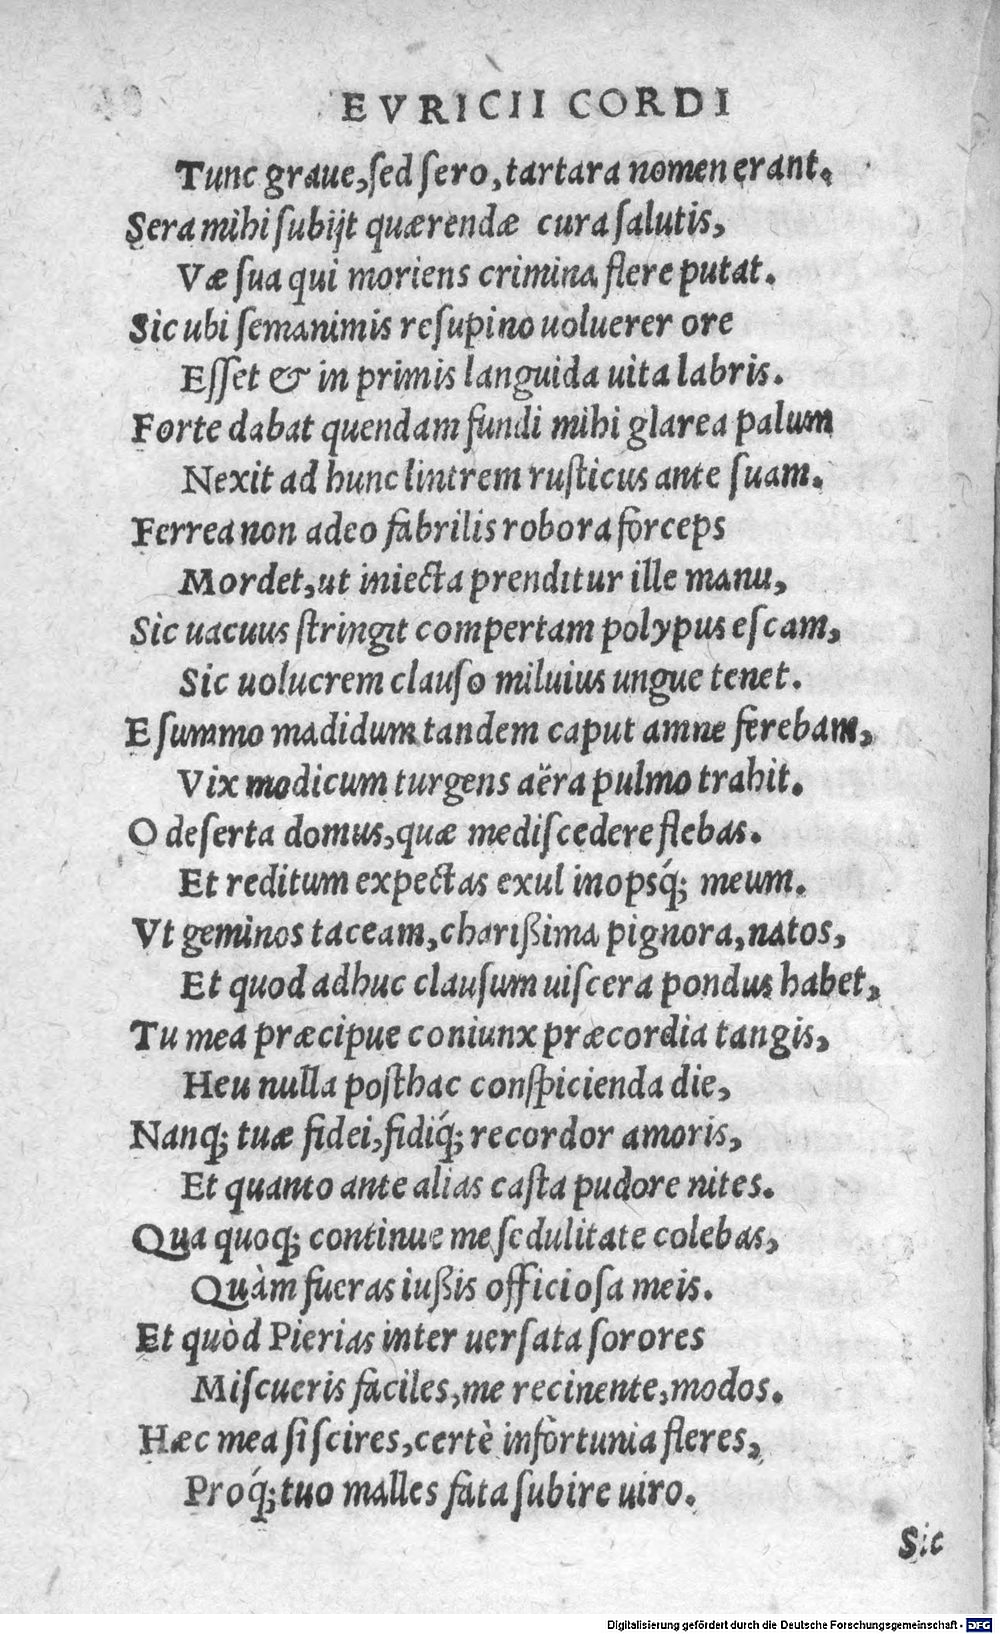 EVRICII CORDI
Tunc graue, sed sero, tartara nomen erant.
Sera mihi subijt quærendæ cura salutis,
Væ sua qui moriens crimina flere putat.
Sic ubi semanimis resupino uoluerer ore
Esset & in primis languida uita labris.
Forte dabat quendam fundi mihi glarea palum
Nexit ad hunc lintrem rusticus ante suam.
Ferrea non adeo fabrilis robora forceps
Mordet, ut iniecta prenditur ille manu,
Sic uacuus stringit compertam polypus escam,
Sic uolucrem clauso miluius ungue tenet.
E summo madidum tandem caput amne ferebam,
Vix modicum turgens aëra pulmo trahit.
O deserta domus, quæ me discedere flebas.
Et reditum expectas exul inopsq́; meum.
Vt geminos taceam, charißima pignora, natos,
Et quod adhuc clausum uiscera pondus habet,
Tu mea præcipue coniunx præcordia tangis,
Heu nulla posthac conspicienda die,
Nanq; tuæ fidei, fidiq́; recordor amoris,
Et quanto ante alias casta pudore nites.
Qua quoq; continue me sedulitate colebas,
Quàm fueras iußis officiosa meis.
Et quòd Pierias inter uersata sorores
Miscueris faciles, me recinente, modos.
Hæc mea si scires, certè infortunia fleres,
Proq́; tuo malles fata subire uiro.
Sic
Digitalisierung gefördert durch die Deutsche Forschungsgemeinschaft - DFG